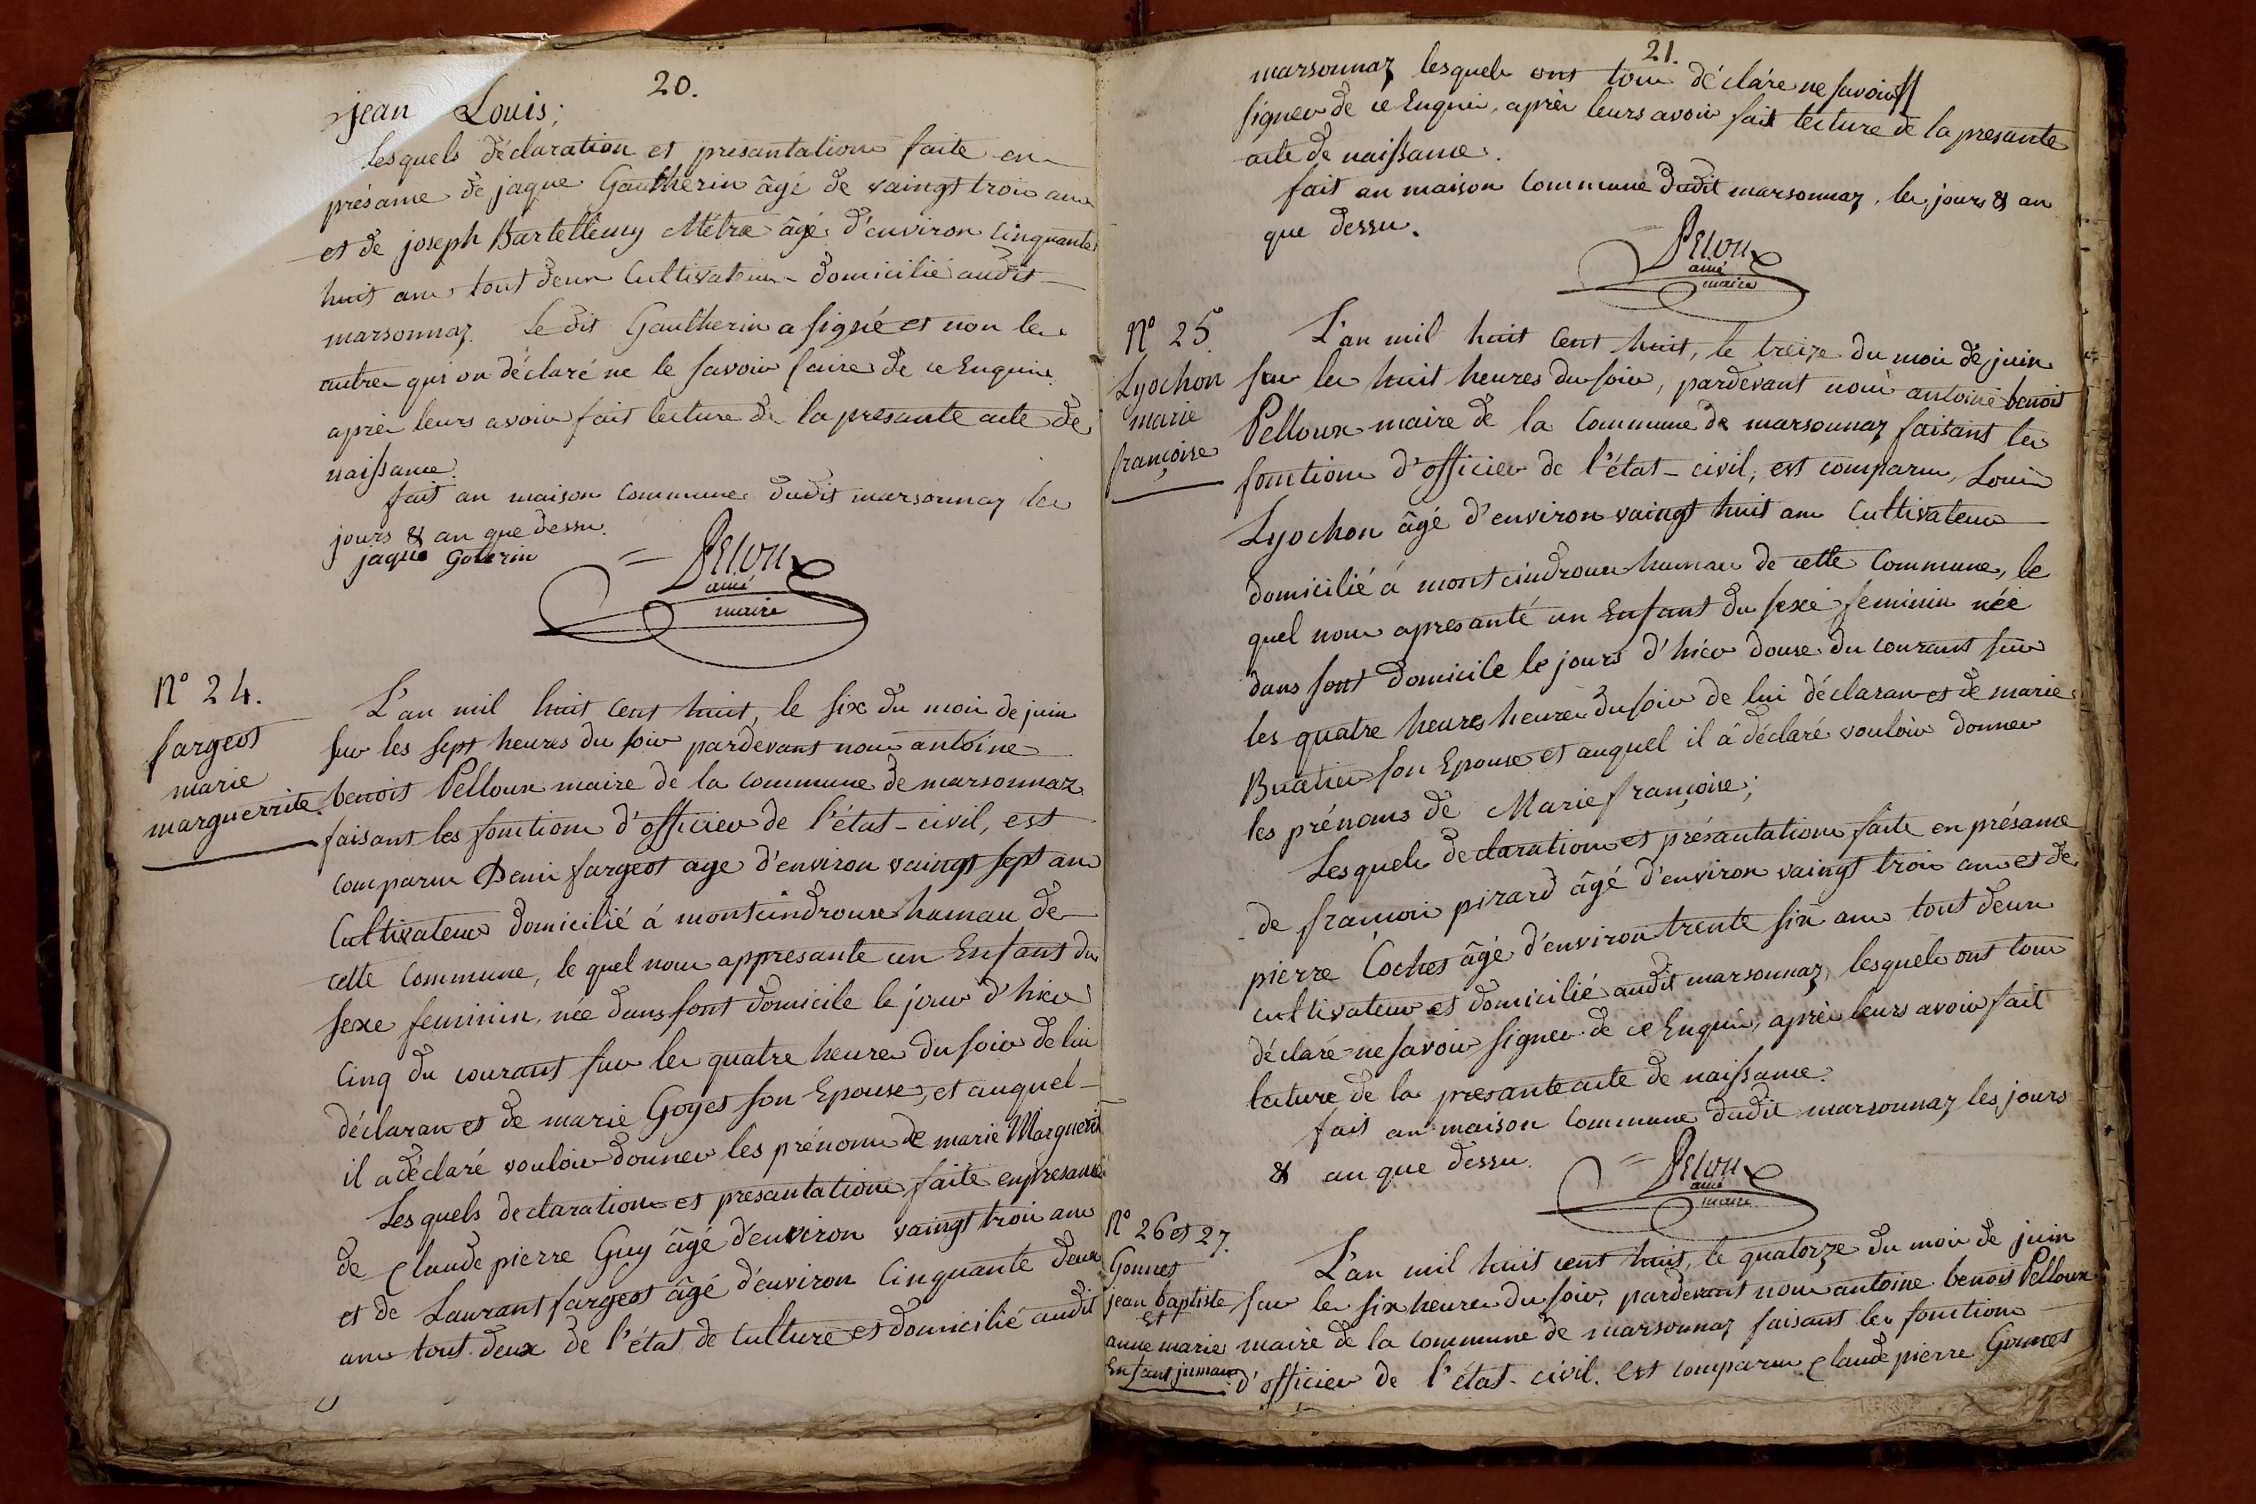 20.
jean Louis;
Lesquels déclaration et presantation faite en
présame de jaque Gautherin âgé de vaingt troiu anu
et de joseph Bartellemy Métra âgé d'environ Cinquante
huit anu tout deux Cultivateur domicilié audit
marsonnaz. Le dit Gautherin a signé et non leu
autre qui on déclaré ne le savoir faire de ce Enquiu
apreu leurs avoir fait lecture de la presante acte de
naissance.
fait an maison Commune dudit marsonnaz leu
jours & an que dessu.
jaque Goterin
Pelou
amé
maire
N° 24.
fargeot
marie
marguerrite
L'an mil huit Cent huit, le six du moiu de juin
sur les sept heures du soir pardevant nouu antoine
benoit Pelloux maire de la commune de marsonnaz
faisant les fonctionu d'officier de l'état-civil, est
comparu Deniu fargeot age d'environ vaingt sept anu
Cultivateur domicilié á montcindroux hamau de
cette Commune, le quel nouu appresante un Enfant du
sexe feminin, née dans sont domicile le jour d'hier
Cinq du courant sur leu quatre heureu du soir de lui
déclaran et de marie Goyet son Epouse, et auquel
il a déclaré vouloir donner les prénomu de marie Marguerit
Lesquels declaration et presantation faite enpresance
de Claude pierre Guy âgé d'environ vaingt troiu anu
et de Laurant fargeot âgé d'environ Cinquante deux
anu tout deux de l'état de Culture et domicilié audit
21.
marsonnaz lesquelu ont touu déclare ne savoir
signer de ce Enquiu, apreu leurs avoir fait lecture de la presante
acte de naissance.
fait an maison Commune dudit marsonnaz, leu jours & an
que dessu.
Pelou
amé
maire
N° 25.
Lyochon
marie
françoise
L'an mil huit Cent huit, le treize du moiu de juin
sur leu huit heures du soir, pardevant nouu antoine benoit
Pelloux maire de la Commune de marsonnaz faisant leu
fonctionu d'officier de l'état-civil, est comparu, Louiu
Lyochon âgé d'environ vaingt huit anu Cultivateur
domicilié á montcindroux hamau de cette Commune, le
quel nouu apresanté un Enfant du sexe feminin née
dans sont domicile le jours d'hier douse du courant sur
les quatre heures heureu du soir de lui déclaran et de marie
Buatier son Epouse et auquel il á déclaré vouloir donner
les prénoms de Marie françoise;
Lesquelu declaration et présantation faite en présance
de françoiu pirard âgé d'environ vaingt troiu anu et de
pierre Cochet âgé d'environ trente six anu tout deux
cultivateur et domicilié audit marsonnaz, lesquelu ont touu
déclaré ne savoir signer de ce Enquiu, apreu leurs avoir fait
lecture de la presante acte de naissance.
fait an maison Commune dudit marsonnaz les jours
& an que dessu.
Pelou
amé
maire
N° 26 et 27.
Gonnet
jean baptiste
et
anne marie
Enfant jumaux
L'an mil huit cent huit, le quatorze du moiu de juin
sur leu six heureu du soir, pardevant nouu antoine benoit Pelloux
maire de la commune de marsonnaz faisant leu fonctionu
d'officier de l'état-civil. est comparu Claude pierre Gonnet